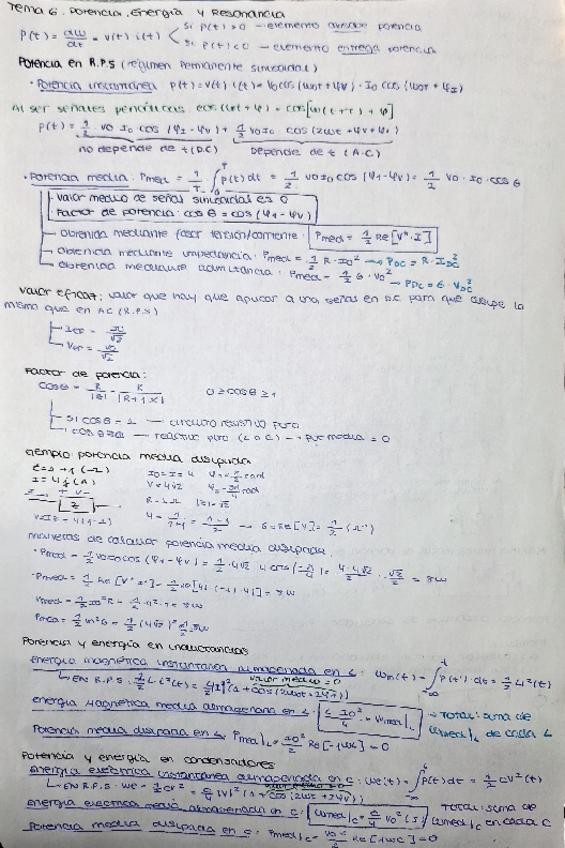 Tema 6. Potencia, Energía y Resonancia
P(t) = dw/dt = v(t) i(t) < si P(t) > 0 — elemento potencia
si P(t) < 0 — elemento entrega potencia
Potencia en R.P.S (régimen permanente sinusoidal)
· Potencia instantánea P(t) = v(t) i(t) = V0 cos (ω0t + φV) · I0 cos (ω0t + φI)
Al ser señales periódicas cos(ωt + φ) = cos[ω(t+T) + φ]
P(t) = 1/2 V0 I0 cos (φI - φV) + 1/2 V0 I0 cos (2ωt + φV + φI)
no depende de t (D.C) Depende de t (A.C)
· Potencia media: Pmed = 1/T ∫ P(t) dt = 1/2 V0 I0 cos (φI - φV) = 1/2 V0 · I0 · cos θ
valor medio de señal sinusoidal es 0
Factor de potencia: cos θ = cos (φI - φV)
Obtenida mediante fasor tensión/corriente: Pmed = 1/2 Re[V* · I]
Obtenida mediante impedancia: Pmed = 1/2 R · I0² → PDC = R · IDC²
Obtenida mediante admitancia: Pmed = 1/2 G · V0² → PDC = G · VDC²
Valor eficaz: valor que hay que aplicar a una señal en D.C para que disipe lo
mismo que en AC (R.P.S)
Ief = I0/√2
Vef = V0/√2
Factor de potencia:
cos θ = R/|Z| = R/|R + jX| 0 ≥ cos θ ≥ 1
si cos θ = 1 — circuito resistivo puro
cos θ = 0 — reactivo puro (L o C) → Pot media = 0
Ejemplo: potencia media disipada
I = 4j (A)
Maneras de calcular potencia media disipada.
· Pmed = 1/2 V0 I0 cos (φI - φV) = 1/2 4√2 · 4 cos = 4·4√2/2 · √2/2 = 8W
Potencia y energía en inductancias
Energía magnética instantánea almacenada en L: Wm(t) = ∫ P(t') · dt = 1/2 L i²(t)
valor medio = 0
Energía magnética media almacenada en L: L I0²/4 = Wmed|L → Total: suma de
Wmed|L de cada L
Potencia media disipada en L: Pmed|L = I0²/2 Re[jωL] = 0
Potencia y energía en condensadores
Energía eléctrica instantánea almacenada en C: We(t) = ∫ P(t) dt = 1/2 CV²(t)
Energía eléctrica media almacenada en C: Wmed|C = C/4 V0² (J) Total: suma de
Wmed|C en cada C
Potencia media disipada en C: Pmed|C = V0²/2 Re[-jωC] = 0